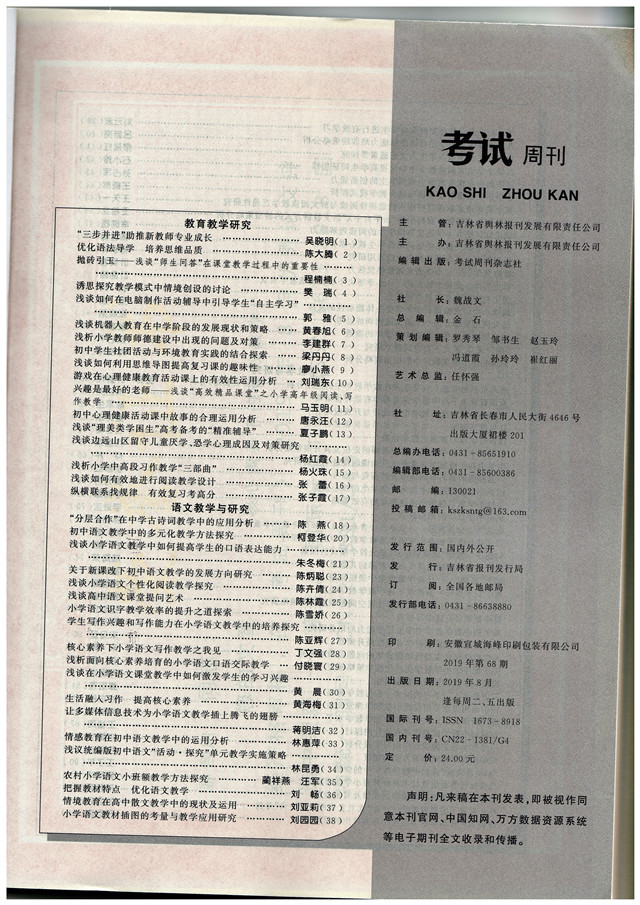 教育教学研究
“三步并进”助推新教师专业成长 …… 吴晓明( 1 )
优化语法导学　培养思维品质 …… 陈大腾( 2 )
抛砖引玉——浅谈“师生问答”在课堂教学过程中的重要性
…… 程楠楠( 3 )
诱思探究教学模式中情境创设的讨论 …… 樊　瑞( 4 )
浅谈如何在电脑制作活动辅导中引导学生“自主学习”
…… 郭　雅( 5 )
浅谈机器人教育在中学阶段的发展现状和策略 …… 黄春旭( 6 )
浅析小学教师师德建设中出现的问题及对策 …… 李建群( 7 )
初中学生社团活动与环境教育实践的结合探索 …… 梁丹丹( 8 )
浅谈如何利用思维导图提高复习课的趣味性 …… 廖小燕( 9 )
游戏在心理健康教育活动课上的有效性运用分析 …… 刘瑞东(10)
兴趣是最好的老师——浅谈“高效精品课堂”之小学高年级阅读、写
作教学 …… 马玉明(11)
初中心理健康活动课中故事的合理运用分析 …… 唐永汪(12)
浅谈“理美类学困生”高考备考的“精准辅导” …… 夏子鹏(13)
浅谈边远山区留守儿童厌学、恐学心理成因及对策研究
…… 杨红霞(14)
浅析小学中高段习作教学“三部曲” …… 杨火珠(15)
浅谈如何有效地进行阅读教学设计 …… 张　蕾(16)
纵横联系找规律　有效复习考高分 …… 张子霞(17)
语文教学与研究
“分层合作”在中学古诗词教学中的应用分析 …… 陈　燕(18)
初中语文教学中的多元化教学方法探究 …… 柯登华(20)
浅谈小学语文教学中如何提高学生的口语表达能力
…… 朱冬梅(21)
关于新课改下初中语文教学的发展方向研究 …… 陈炳聪(23)
浅谈小学语文个性化阅读教学探究 …… 陈卉倩(24)
浅谈高中语文课堂提问艺术 …… 陈林霞(25)
小学语文识字教学效率的提升之道探索 …… 陈雪娇(26)
学生写作兴趣和写作能力在小学语文教学中的培养探究
…… 陈亚辉(27)
核心素养下小学语文写作教学之我见 …… 丁文强(28)
浅析面向核心素养培育的小学语文口语交际教学 …… 付晓寰(29)
浅谈在小学语文课堂教学中如何激发学生的学习兴趣
…… 黄　晨(30)
生活融入习作　提高核心素养 …… 黄海梅(31)
让多媒体信息技术为小学语文教学插上腾飞的翅膀
…… 蒋明洁(32)
情感教育在初中语文教学中的运用分析 …… 林惠萍(33)
浅议统编版初中语文“活动·探究”单元教学实施策略
…… 林昆勇(34)
农村小学语文小班额教学方法探究 …… 蔺祥燕　汪军(35)
把握教材特点　优化语文教学 …… 刘　畅(36)
情境教育在高中散文教学中的现状及运用 …… 刘亚莉(37)
小学语文教材插图的考量与教学应用研究 …… 刘园园(38)
考试 周刊
KAO SHI　ZHOU KAN
主　　管：吉林省舆林报刊发展有限责任公司
主　　办：吉林省舆林报刊发展有限责任公司
编辑出版：考试周刊杂志社
社　　长：魏战文
总 编 辑：金　石
策划编辑：罗秀琴　邹书生　赵玉玲
冯道霞　孙玲玲　崔红丽
艺术总监：任怀强
社　　址：吉林省长春市人民大街4646号
出版大厦裙楼201
总编办电话：0431-85651910
编辑部电话：0431-85600386
邮　　编：130021
投稿邮箱：kszksntg@163.com
发行范围：国内外公开
发　　行：吉林省报刊发行局
订　　阅：全国各地邮局
发行部电话：0431-86638880
印　　刷：安徽宣城海峰印刷包装有限公司
2019年第68期
出版日期：2019年8月
逢每周二、五出版
国际刊号：ISSN　1673-8918
国内刊号：CN22-1381/G4
定　　价：24.00元
声明：凡来稿在本刊发表，即被视作同
意本刊官网、中国知网、万方数据资源系统
等电子期刊全文收录和传播。